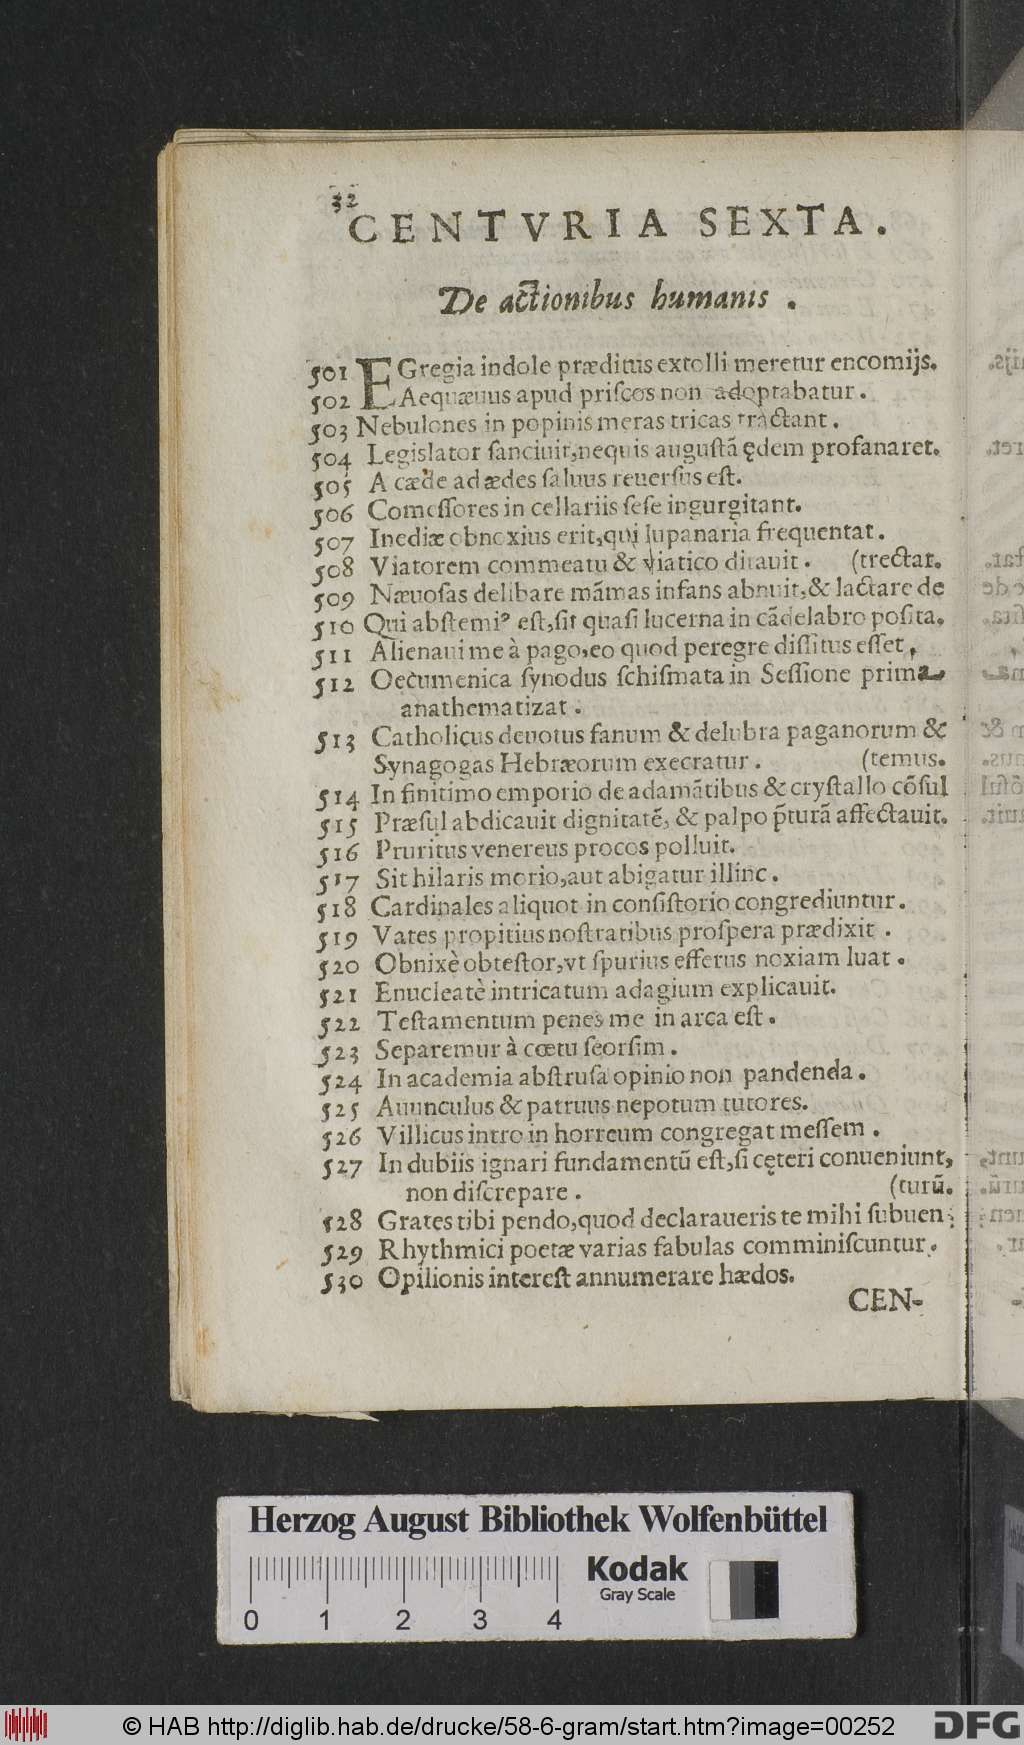 32
CENTVRIA SEXTA.
De actionibus humanis.
501 EGregia indole præditus extolli meretur encomijs.
502 Aequæuus apud priſcos non adoptabatur.
503 Nebulones in popinis meras tricas tractant.
504 Legislator ſanciuit,nequis auguſtã ędem profanaret.
505 A cæde ad ædes ſaluus reuerſus eſt.
506 Comeſſores in cellariis ſeſe ingurgitant.
507 Inediæ obnoxius erit,qui lupanaria frequentat.
508 Viatorem commeatu & viatico ditauit. (trectat.
509 Næuoſas delibare mãmas infans abnuit,& lactare de
510 Qui abſtemiꝰ eſt,ſit quaſi lucerna in cãdelabro poſita.
511 Alienaui me à pago,eo quod peregre diſſitus eſſet,
512 Oecumenica ſynodus ſchiſmata in Seſſione prima
anathematizat.
513 Catholicus deuotus fanum & delubra paganorum &
Synagogas Hebræorum execratur. (temus.
514 In finitimo emporio de adamãtibus & cryſtallo cõſul
515 Præſul abdicauit dignitatẽ, & palpo p̃turã affectauit.
516 Pruritus venereus procos polluit.
517 Sit hilaris morio,aut abigatur illinc.
518 Cardinales aliquot in conſiſtorio congrediuntur.
519 Vates propitius noſtratibus proſpera prædixit.
520 Obnixè obteſtor,vt ſpurius efferus noxiam luat.
521 Enucleatè intricatum adagium explicauit.
522 Teſtamentum penes me in arca eſt.
523 Separemur à cœtu ſeorſim.
524 In academia abſtruſa opinio non pandenda.
525 Auunculus & patruus nepotum tutores.
526 Villicus intro in horreum congregat meſſem.
527 In dubiis ignari fundamentũ eſt,ſi cęteri conueniunt,
non diſcrepare. (turũ.
528 Grates tibi pendo,quod declaraueris te mihi ſubuen-
529 Rhythmici poetæ varias fabulas comminiſcuntur.
530 Opilionis intereſt annumerare hædos.
CEN-
Herzog August Bibliothek Wolfenbüttel
0 1 2 3 4
Kodak
Gray Scale
© HAB http://diglib.hab.de/drucke/58-6-gram/start.htm?image=00252
DFG